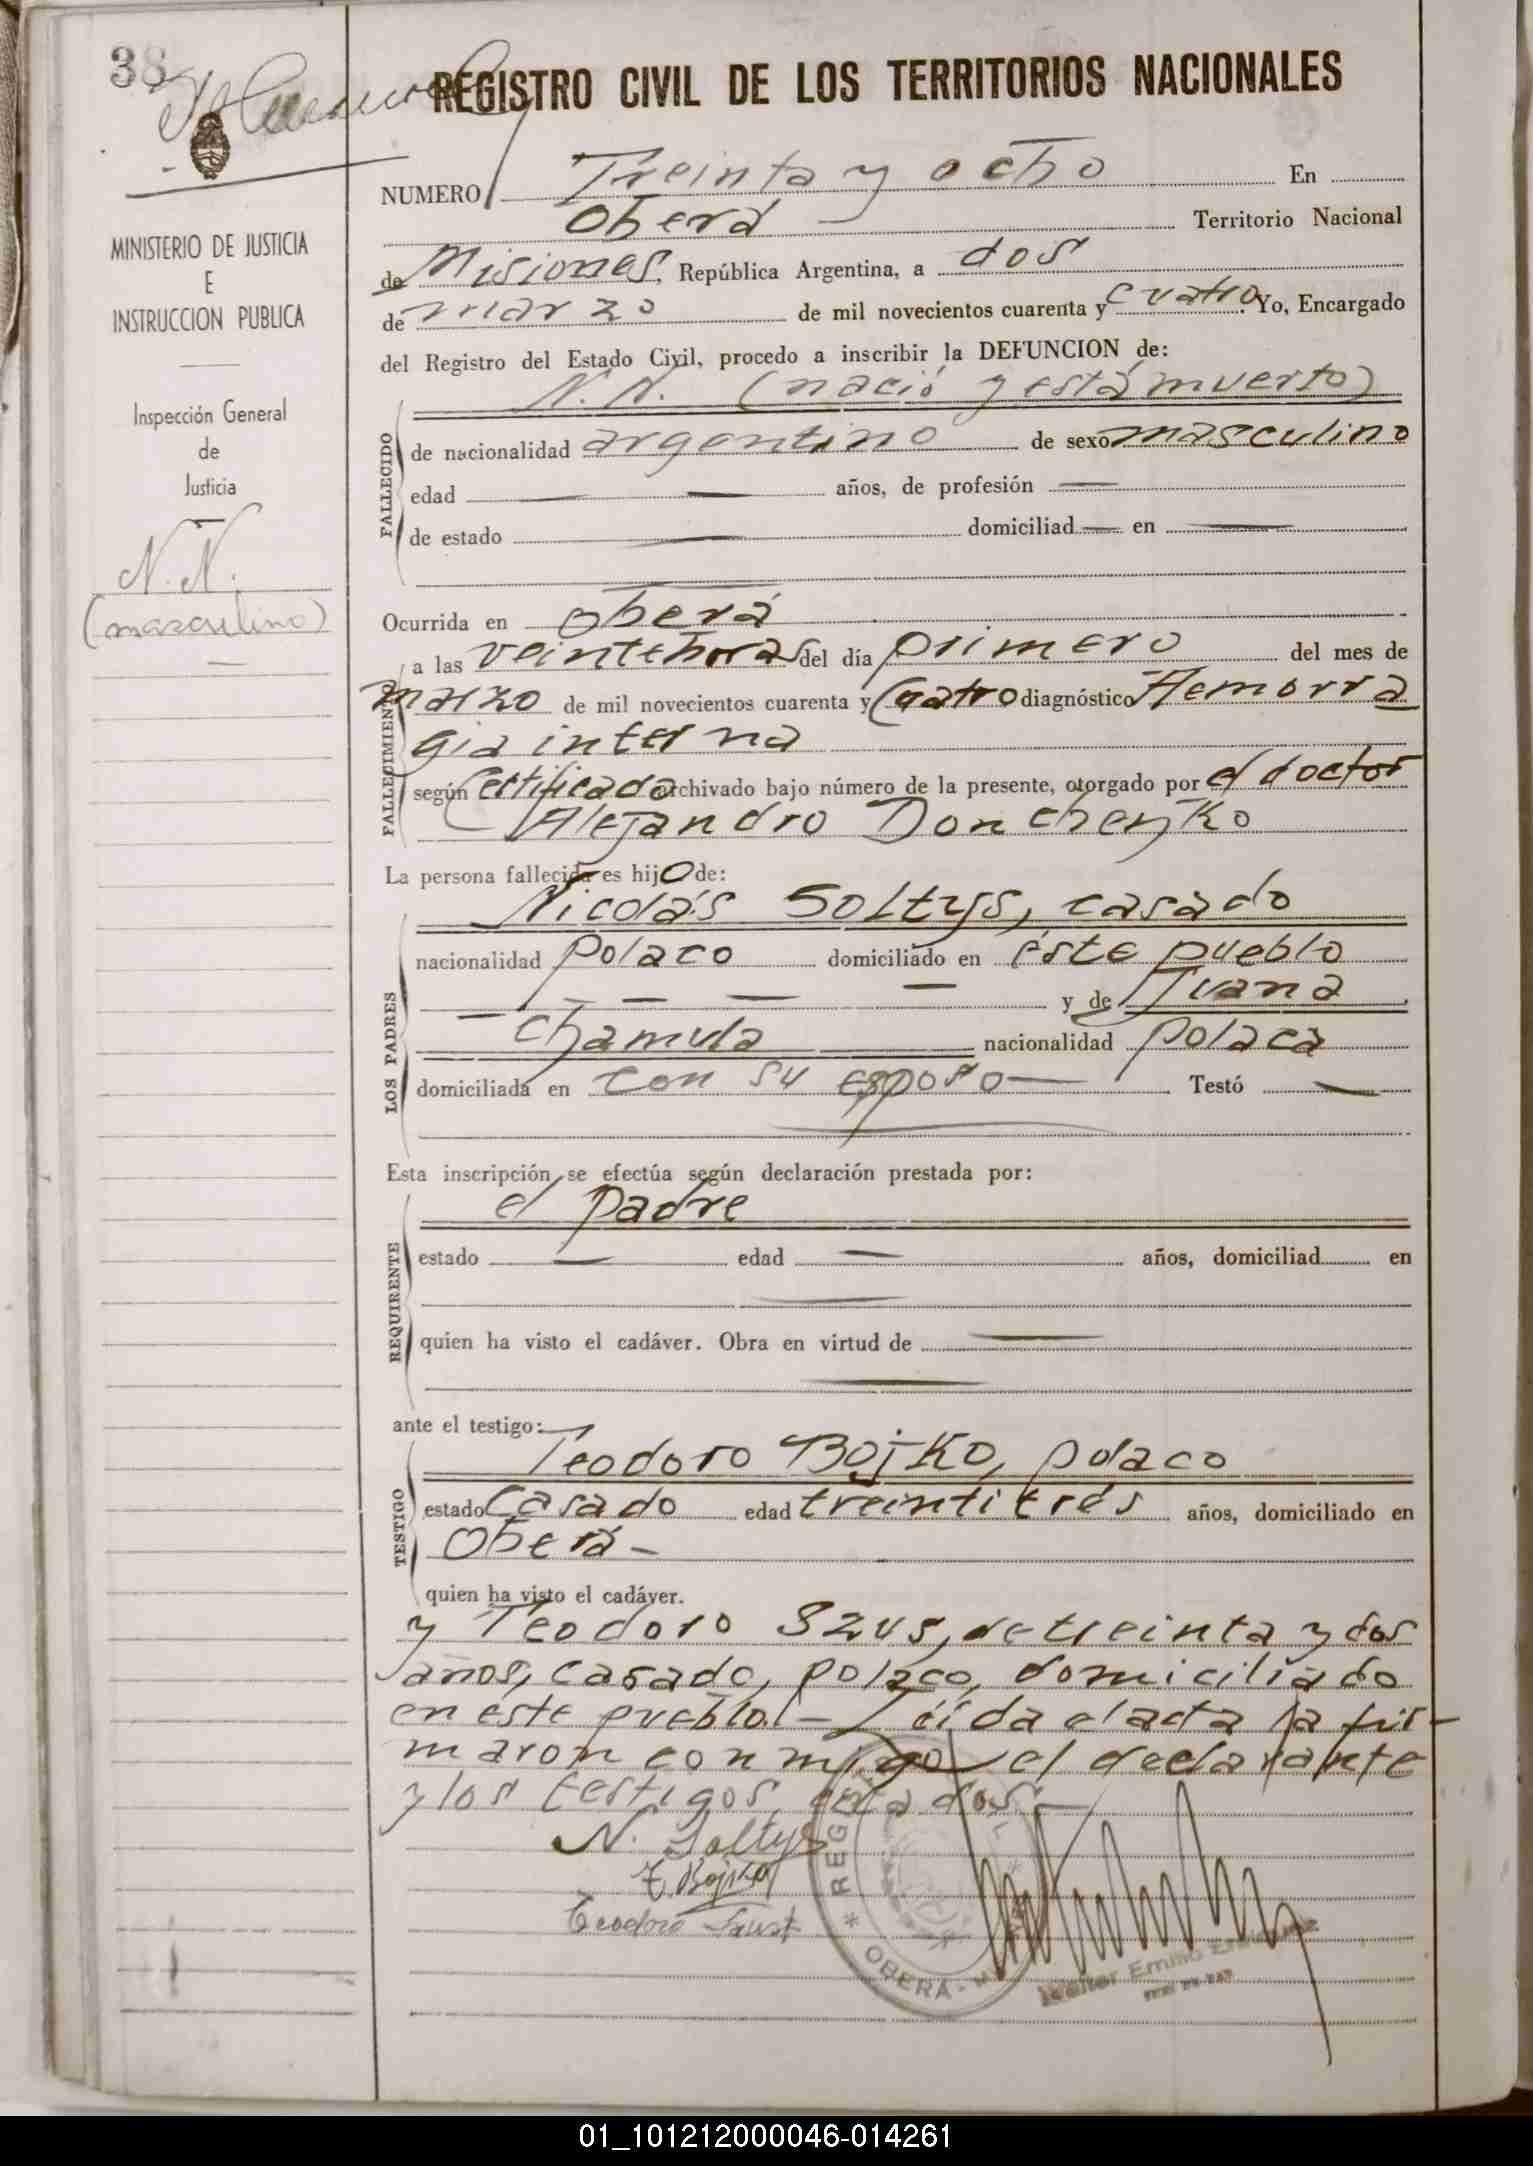 38
REGISTRO CIVIL DE LOS TERRITORIOS NACIONALES
MINISTERIO DE JUSTICIA
E
INSTRUCCION PUBLICA
Inspección General
de
Justicia
N.N.
(masculino)
NUMERO Treinta y ocho En
Oberá Territorio Nacional
de Misiones, República Argentina, a dos
de marzo de mil novecientos cuarenta y cuatro. Yo, Encargado
del Registro del Estado Civil, procedo a inscribir la DEFUNCION de:
N. N. (nació y está muerto)
FALLECIDO
de nacionalidad argentino de sexo masculino
edad — — años, de profesión —
de estado — domiciliad — en —
Ocurrida en Oberá
FALLECIMIENTO
a las veinte horas del día primero del mes de
marzo de mil novecientos cuarenta y cuatro diagnóstico Hemorra
gia interna
según certificado archivado bajo número de la presente, otorgado por el doctor
Alejandro Donchenko
La persona fallecida es hijo de:
LOS PADRES
Nicolás Soltys, casado
nacionalidad polaco domiciliado en éste pueblo
— — — — y de Juana
Chamula nacionalidad polaca
domiciliada en con su esposo — Testó —
Esta inscripción se efectúa según declaración prestada por:
REQUIRENTE
el padre
estado — edad — años, domiciliad en
—
quien ha visto el cadáver. Obra en virtud de —
—
ante el testigo:
TESTIGO
Teodoro Bojko, polaco
estado casado edad treintitrés años, domiciliado en
Oberá —
quien ha visto el cadáver.
y Teodoro Szus, de treinta y dos
años, casado, polaco, domiciliado
en este pueblo. — Leída el acta la fir-
maron conmigo el declarante
y los testigos citados. —
N. Soltys
T. Bojko
Teodoro
REGIS
* OBERA - M
Emilio
01_101212000046-014261